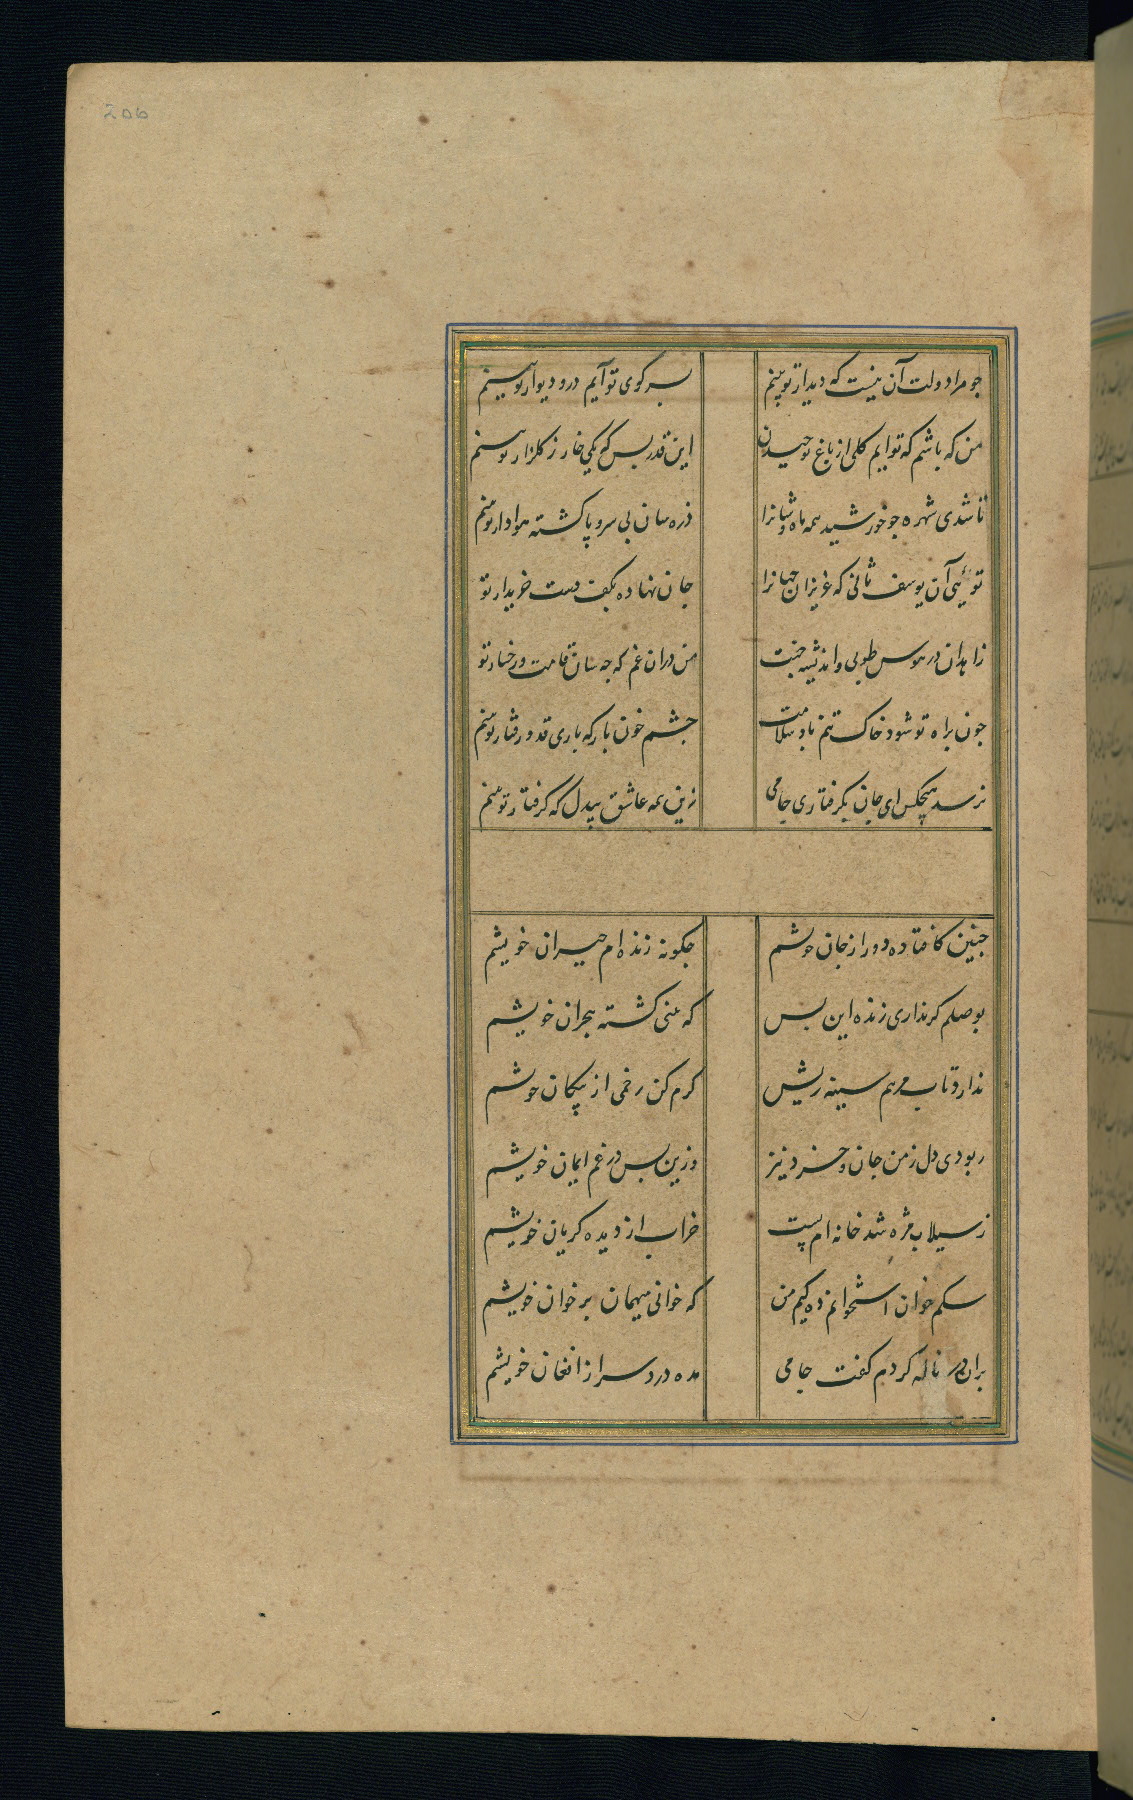 206
جو مرا دولت آن نیست که دیدار تو بینم
بسر کوی تو آیم در و دیوار تو بینم
من که باشم که توانم کلی از باغ تو چیدن
این قدر بس که یکی خار ز کلزار تو بینم
تا شدی شهره جو خورشید همه ماه وشانرا
ذره سان بی سر و پا کشته هوادار تو بینم
توئی آن یوسف ثانی که عزیزان جهانرا
جان نهاده بکف دست خریدار تو
زاهدان در هوس طوبی و اندیشه جنت
من دران غم که جه سان قامت و رخسار تو
جون براه تو شود خاک تنم باد سلامت
جشم خون بار که باری قد و رفتار تو بینم
نرسد هیچکس ای جان بکرفتاری جامی
زین همه عاشق بیدل که کرفتار تو بینم
جنین کافتاده دور از جان خویشم
جکونه زنده ام حیران خویشم
بوصلم کر نداری زنده این بس
که بینی کشته هجران خویشم
ندارد تاب مرهم سینه ریش
کرم کن زخمی از پیکان خویشم
ربودی دل ز من جان و خرد نیز
وزین پس در غم ایمان خویشم
ز سیلاب مژه شد خانه ام پست
خراب از دیده کریان خویشم
سکم خوان استخوانم ده کیم من
که خوانی میهمان بر خوان خویشم
بران در ناله کردم کفت جامی
مده دردسر از افغان خویشم